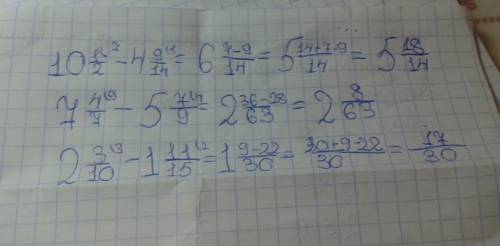 10 1/2 ⁷ - 4 9/14 ¹ = 6 7-9/14 = 5 14+7-9/14 = 5 18/14
7 4/7 ⁹ - 5 7/9 ⁷ = 2 36-28/63 = 2 8/63
2 3/10 ³ - 1 11/15 ² = 1 9-22/30 = 30+9-22/30 = 17/30